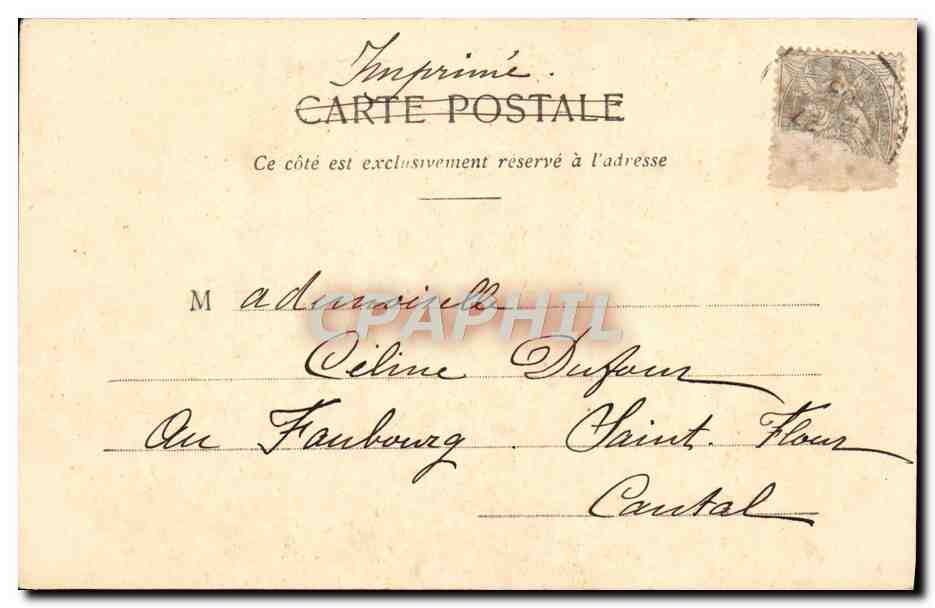 Imprimé.
CARTE POSTALE
Ce côté est exclusivement réservé à l'adresse
Mademoiselle
CPAPHIL
Céline Dufour
Au Faubourg. Saint. Flour
Cantal